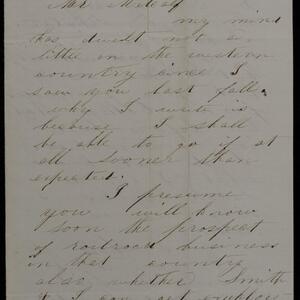 Mr Metcalf
my mind
has dwelt not a
little on the western
country since I
saw you last fall.
why I write is
because I shall
be able to go if at
all sooner than
expected.
I presume
you will know
soon the prospect
of railroad business
in that country
also whether Smith
& I can get